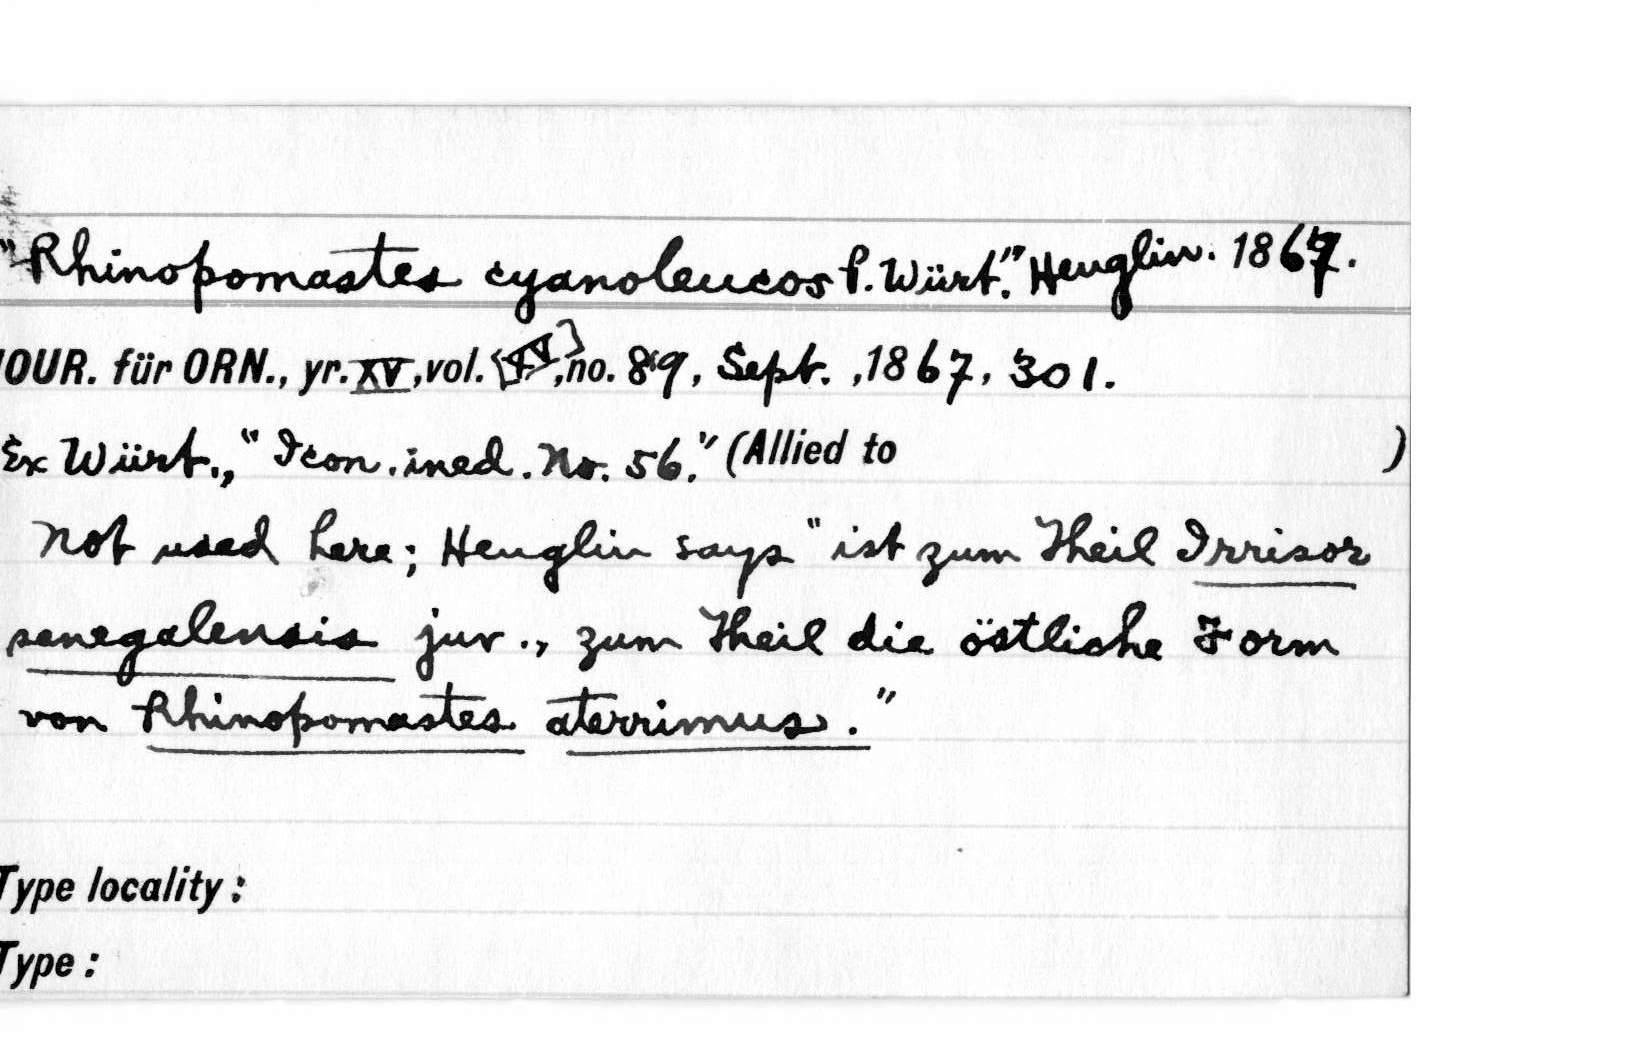 "Rhinopomastes cyanoleucos P. Würt." Heuglin. 1867.
JOUR. für ORN., yr. XV, vol. [XV], no. 89, Sept. , 1867, 301.
Ex Würt., "Icon. ined. No. 56." (Allied to )
Not used here; Heuglin says "ist zum Theil Irrisor
senegalensis juv., zum Theil die östliche Form
von Rhinopomastes aterrimus."
Type locality:
Type: